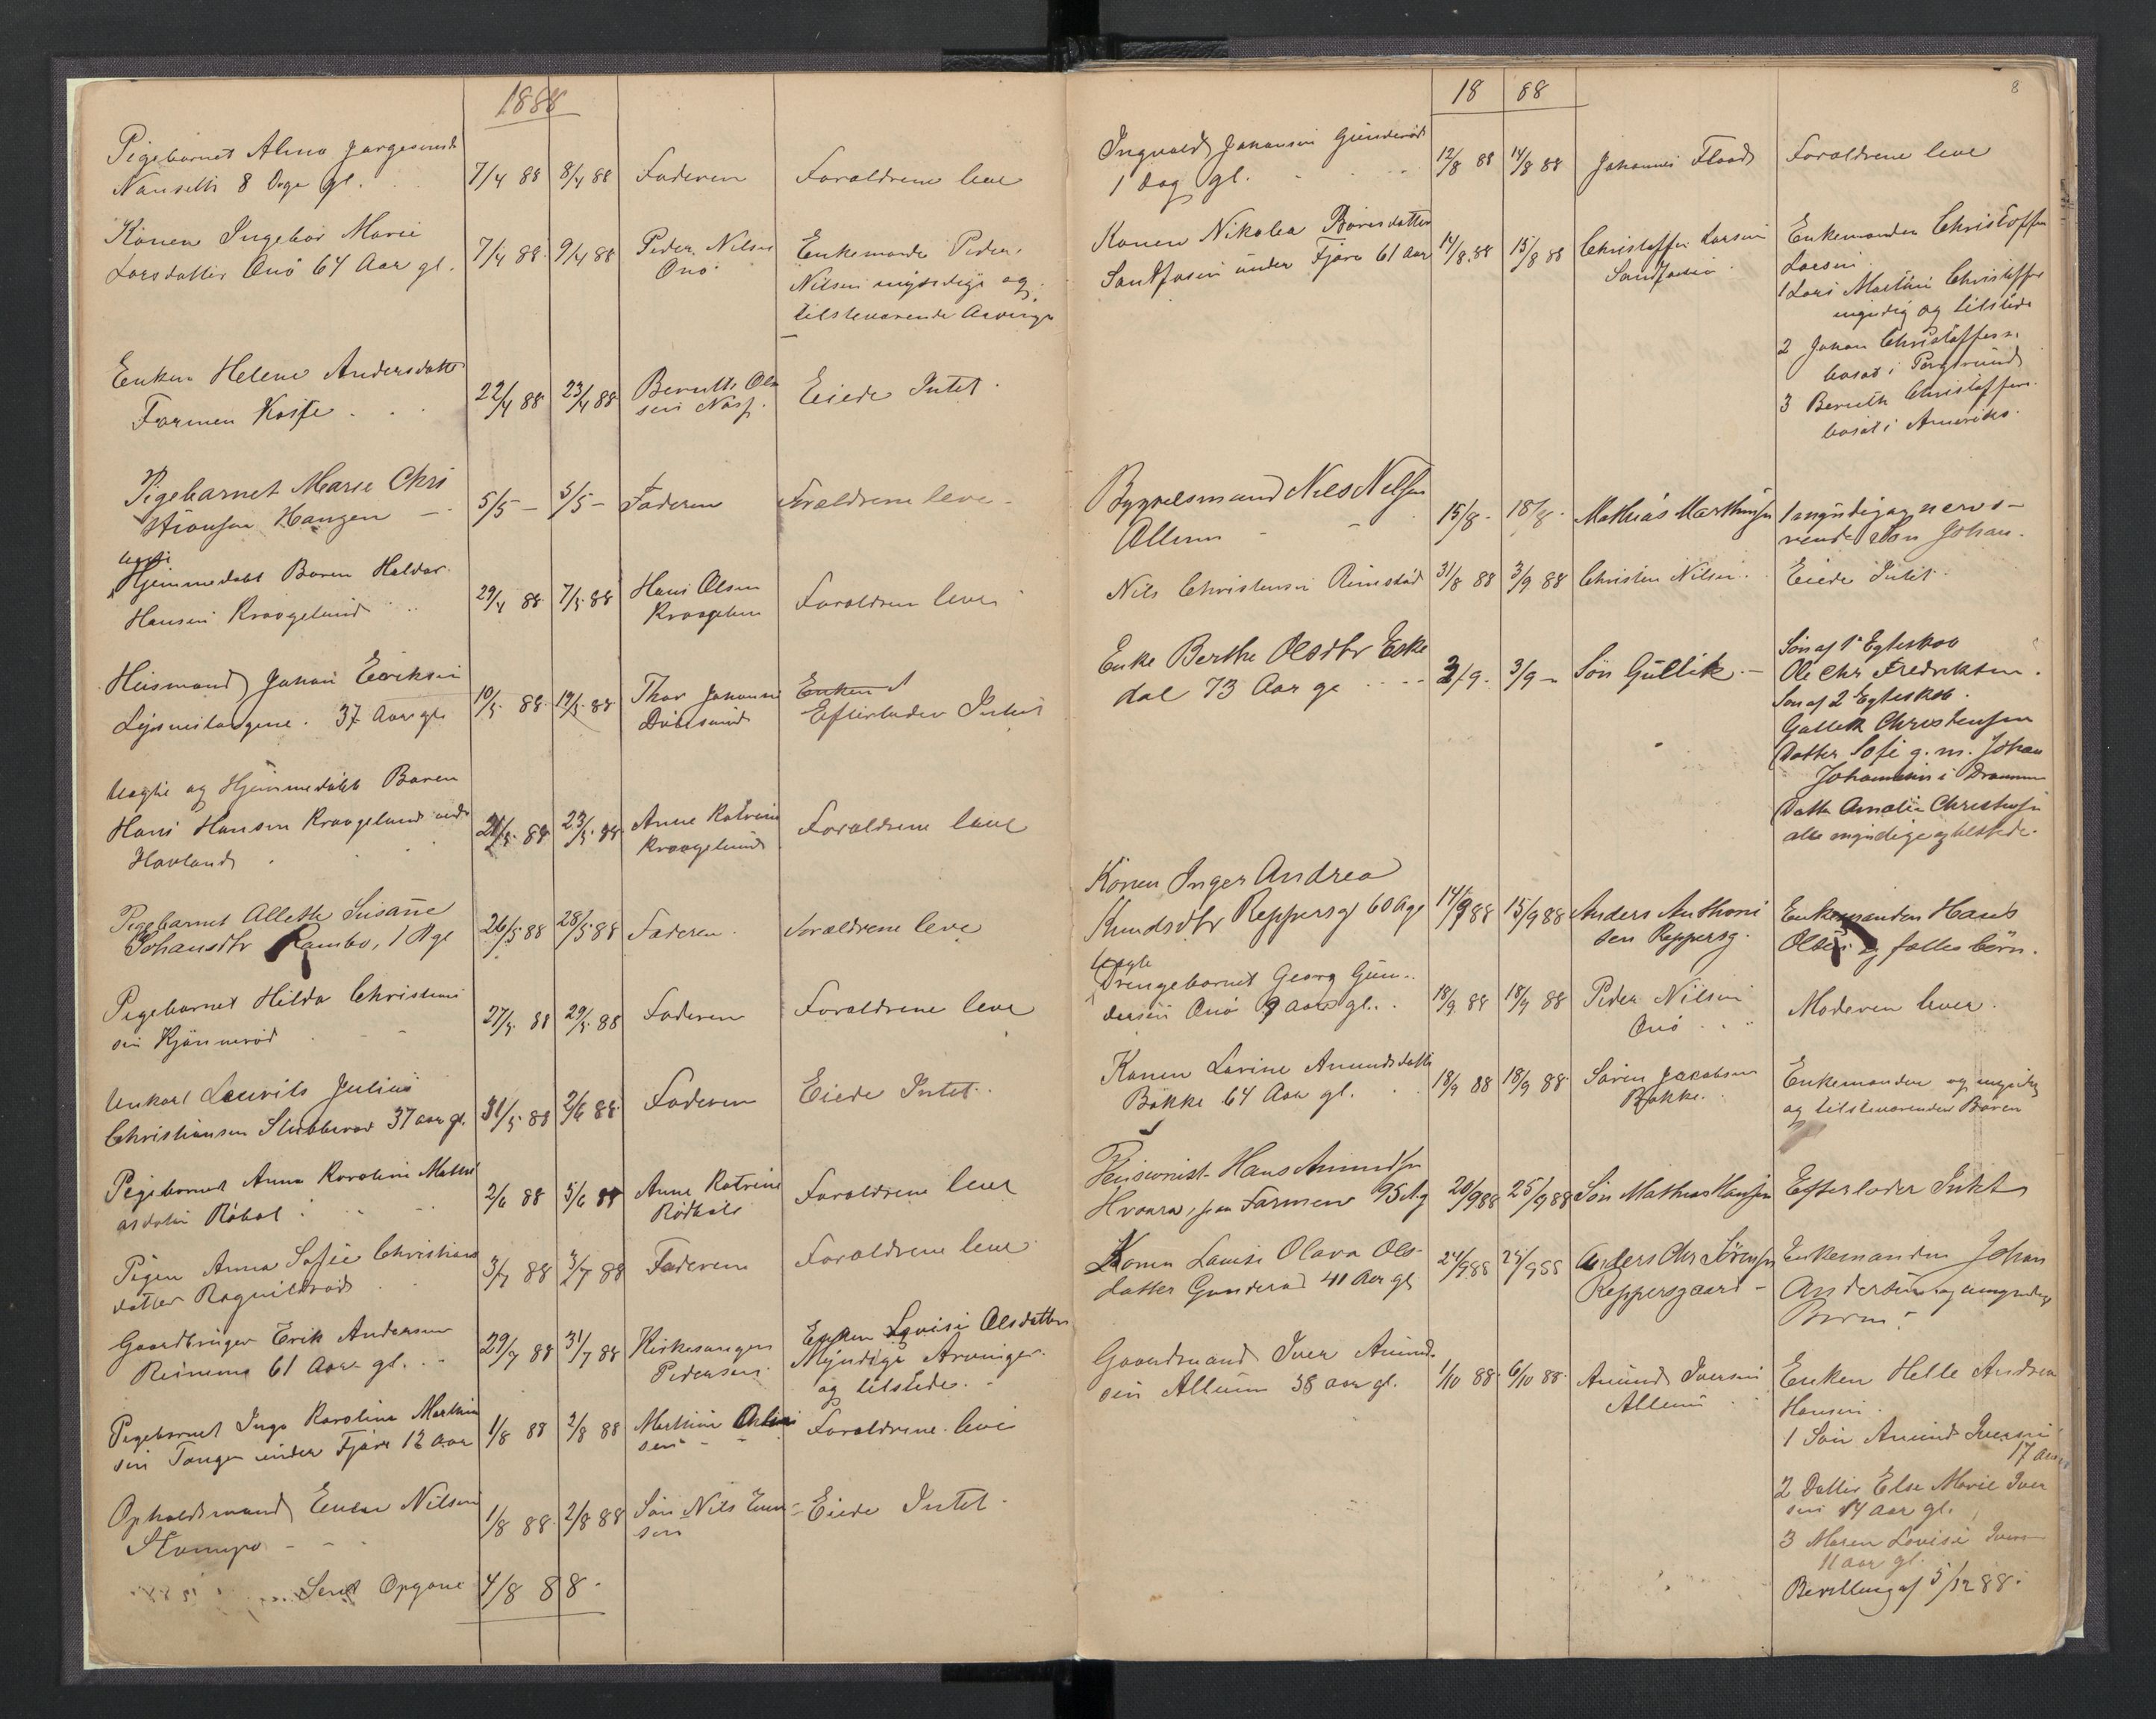 1888
Pigebarnet Alma Jørgensend
Nanseth 8 Dage gl. 7/4 88 8/4 88 Faderen Forældrene leve
Konen Ingebor Marie
Larsdatter Onø 64 Aar gl. 7/4 88 9/4 88 Peder Nilsen Onø Enkemande Peder
Nilsen myndige og
tilsteværende Arvinge
Enken Helene Andersdatt
Farmen 22/4 88 23/4 88 Berntt Olsen Eiede Intet
Pigebarnet Marie Chri
stiansen Haugen 5/5 – 5/5 – Faderen Forældrene leve
uægte
Hjemmedøbt Baren Haldor
Hansen Kraagelund 29/4 88 7/5 88 Hans Olsen Kraagelun Forældren leve
Huusmand Johan Eeriksen
37 Aar gl 10/5 88 19/5 88 Thor Johanne Enken
Efterlader Intet
Uægte og Hjemmedøbt Baren
Hans Hansen Kraagelund und
Havland 21/5 88 23/5 88 Anne Katrine Kraagelund Forældrene leve
Pigebarnet Allette Susanne
Johansdtr Rambo, 1 D gl 26/5 88 28/5 88 Faderen Forældrene leve
Pigebarnet Hilda Christian
sen Kjønnerød 27/5 88 29/5 88 Faderen Forældrene leve
Unkarl Laurits Julius
Christiansen Stubberød 37 aar gl. 31/5 88 2/6 88 Faderen Eiede Intet
Pigebarnet Anna Karoline Mathi
asdatter Røbøl 2/6 88 5/6 88 Anne Katrine Rødbøl Forældrene leve
Pigen Anna Sofie Christians
datter Ragnildrød 3/7 88 3/7 88 Faderen Forældrene leve
Gaardbruger Erik Andersen
61 Aar gl. 29/7 88 31/7 88 Kirkesanger Pedersen Enken Lovise Olsdatter
Myndige Arvinger
og tilstede.
Pigebarnet Inga Karoline Marthin
sen Tangen under Fjære 12 Aar 1/8 88 2/8 88 Marthin sen Forældrene leve
Opholdsmand Einar Nilsen
1/8 88 2/8 88 Søn Nils Einersen Eiede Intet
Send Opgave 4/8 88
18 88
8
Ingvald Johansen Gunderød
1 dag gl. 12/8 88 14/8 88 Johannes Flaad Forældrene leve
Konen Nikolea Børesdatter
under Fjære 61 Aar 14/8 88 15/8 88 Christoffer Larsen Enkemanden Christoffer
Larsen
1 Lars Martin Christoffer
myndig og tilstede
2 Johan Christoffers.
bosat i Porsgrund
3 Bernth Christoffers.
bosat i Amerika.
Bygselsmand Niels Nilsen
Allum 15/8 – 18/8 – Mathias Marthinsen 1 myndig og nervæ–
rende Søn Johan.
Nils Christensen Rimstad 31/8 88 3/9 88 Christen Nilsen Eiede Intet
Enke Berthe Olsdtr Eske
dal 73 Aar gl 2/9 – 3/9 – Søn Gullik – Søn af 1 Egteskab
Ole Chr Fredriksen.
Søn af 2 Egteskab.
Gullek Christensen
Datter Sofie g. m. Johan
Johannesen i Drammen
Datte Amalie Christensen
alle myndige og tilstede.
Konen Inger Andrea
Knudsdtr Reppersg 60 A gl 14/9 88 15/9 88 Anders Anthoni
sen Reppersg. Enkemanden Hans
Olsen og fælles børn.
Uægte
Drengebarnet Georg Gun
dersen Onø 9 aar gl. 18/9 88 18/9 88 Peder Nilsen Onø Moderen lever.
Konen Lavine Amundsdatte
Bakke 64 Aar gl. 18/9 88 18/9 88 Søren Jacobsen Bakke. Enkemanden og myndig
og tilsteværender Baren
Pensionist Hans Amundsen
Hvaara, fra Farmen 95 A. g 20/9 88 25/9 88 Søn Mathias Hansen Efterlader Intet
Konen Lovise Olava Ols
datter Gunderød 41 Aar gl 24/9 88 25/9 88 Anders Chr Sørensen
Reppersgaard – Enkemanden Johan
Andersen og umyndige
Børn.
Gaardmand Iver Amund
sen Allum 38 aar gl. 1/10 88 6/10 88 Amund Iversen
Allum Enken Helle Andrea
Hansen.
1 Søn Amund Iversen
17 Aar
2 Datter Else Marie Iver
sen 14 aar gl.
3 Maren Lovise Iver
11 aar gl.
Bevilling af 5/12 88.